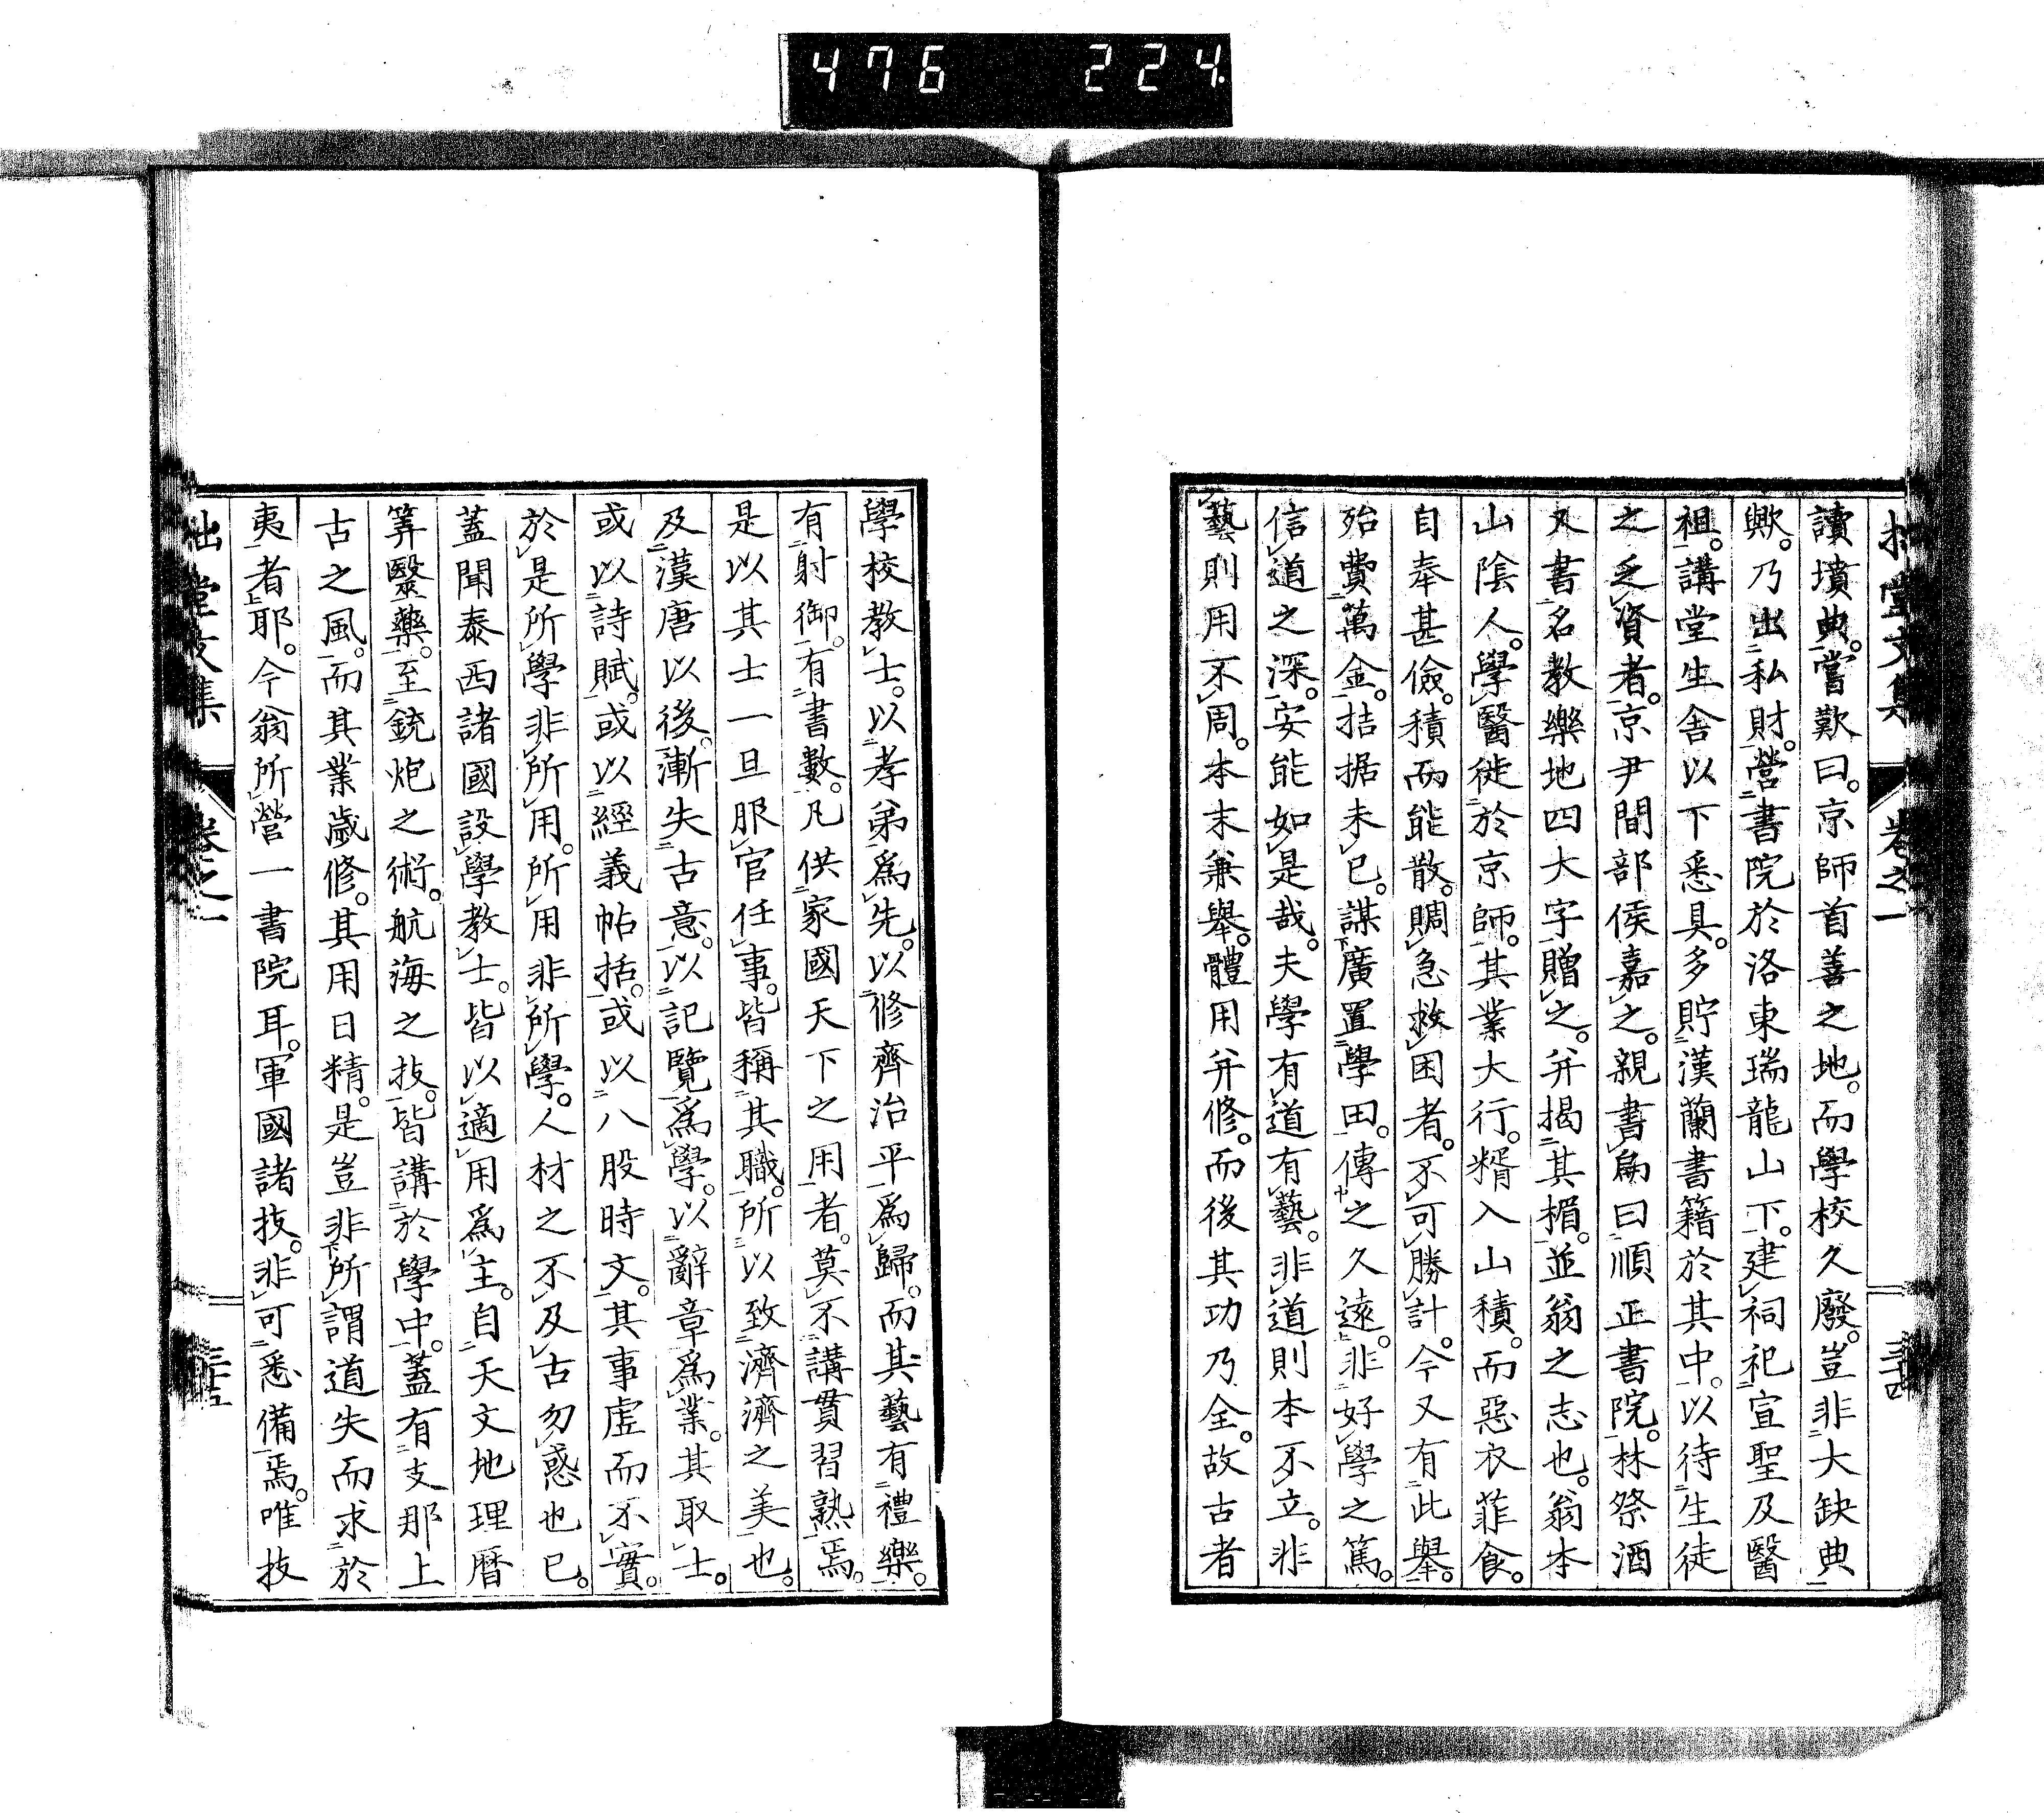 476 224
拙堂文集 卷之一 三十四
讀墳典。嘗歎曰。京師首善之地。而學校久廢。豈非大缺典
歟。乃出私財。營書院於洛東瑞龍山下。建祠祀宣聖及醫
祖。講堂生舍以下悉具。多貯漢蘭書籍於其中。以待生徒
之乏資者。京尹間部侯嘉之。親書扁曰順正書院。林祭酒
又書名教樂地四大字贈之。并揭其楣。並翁之志也。翁本
山陰人。學醫徙於京師。其業大行。糈入山積。而惡衣菲食。
自奉甚儉。積而能散。賙急救困者。不可勝計。今又有此舉。
殆費萬金。拮据未已。謀廣置學田。傳之久遠。非好學之篤。
信道之深。安能如是哉。夫學有道有藝。非道則本不立。非
藝則用不周。本末兼舉。體用并修。而後其功乃全。故古者
學校教士。以孝弟爲先。以修齊治平爲歸。而其藝有禮樂。
有射御。有書數。凡供家國天下之用者。莫不講貫習熟焉。
是以其士一旦服官任事。皆稱其職。所以致濟濟之美也。
及漢唐以後。漸失古意。以記覽爲學。以辭章爲業。其取士。
或以詩賦。或以經義帖括。或以八股時文。其事虛而不實。
於是所學非所用。所用非所學。人材之不及古勿惑也已。
蓋聞泰西諸國設學教士。皆以適用爲主。自天文地理曆
筭醫藥。至銃炮之術。航海之技。皆講於學中。蓋有支那上
古之風。而其業歲修。其用日精。是豈非所謂道失而求於
夷者耶。今翁所營一書院耳。軍國諸技。非可悉備焉。唯技
拙堂文集 卷之一 三十五